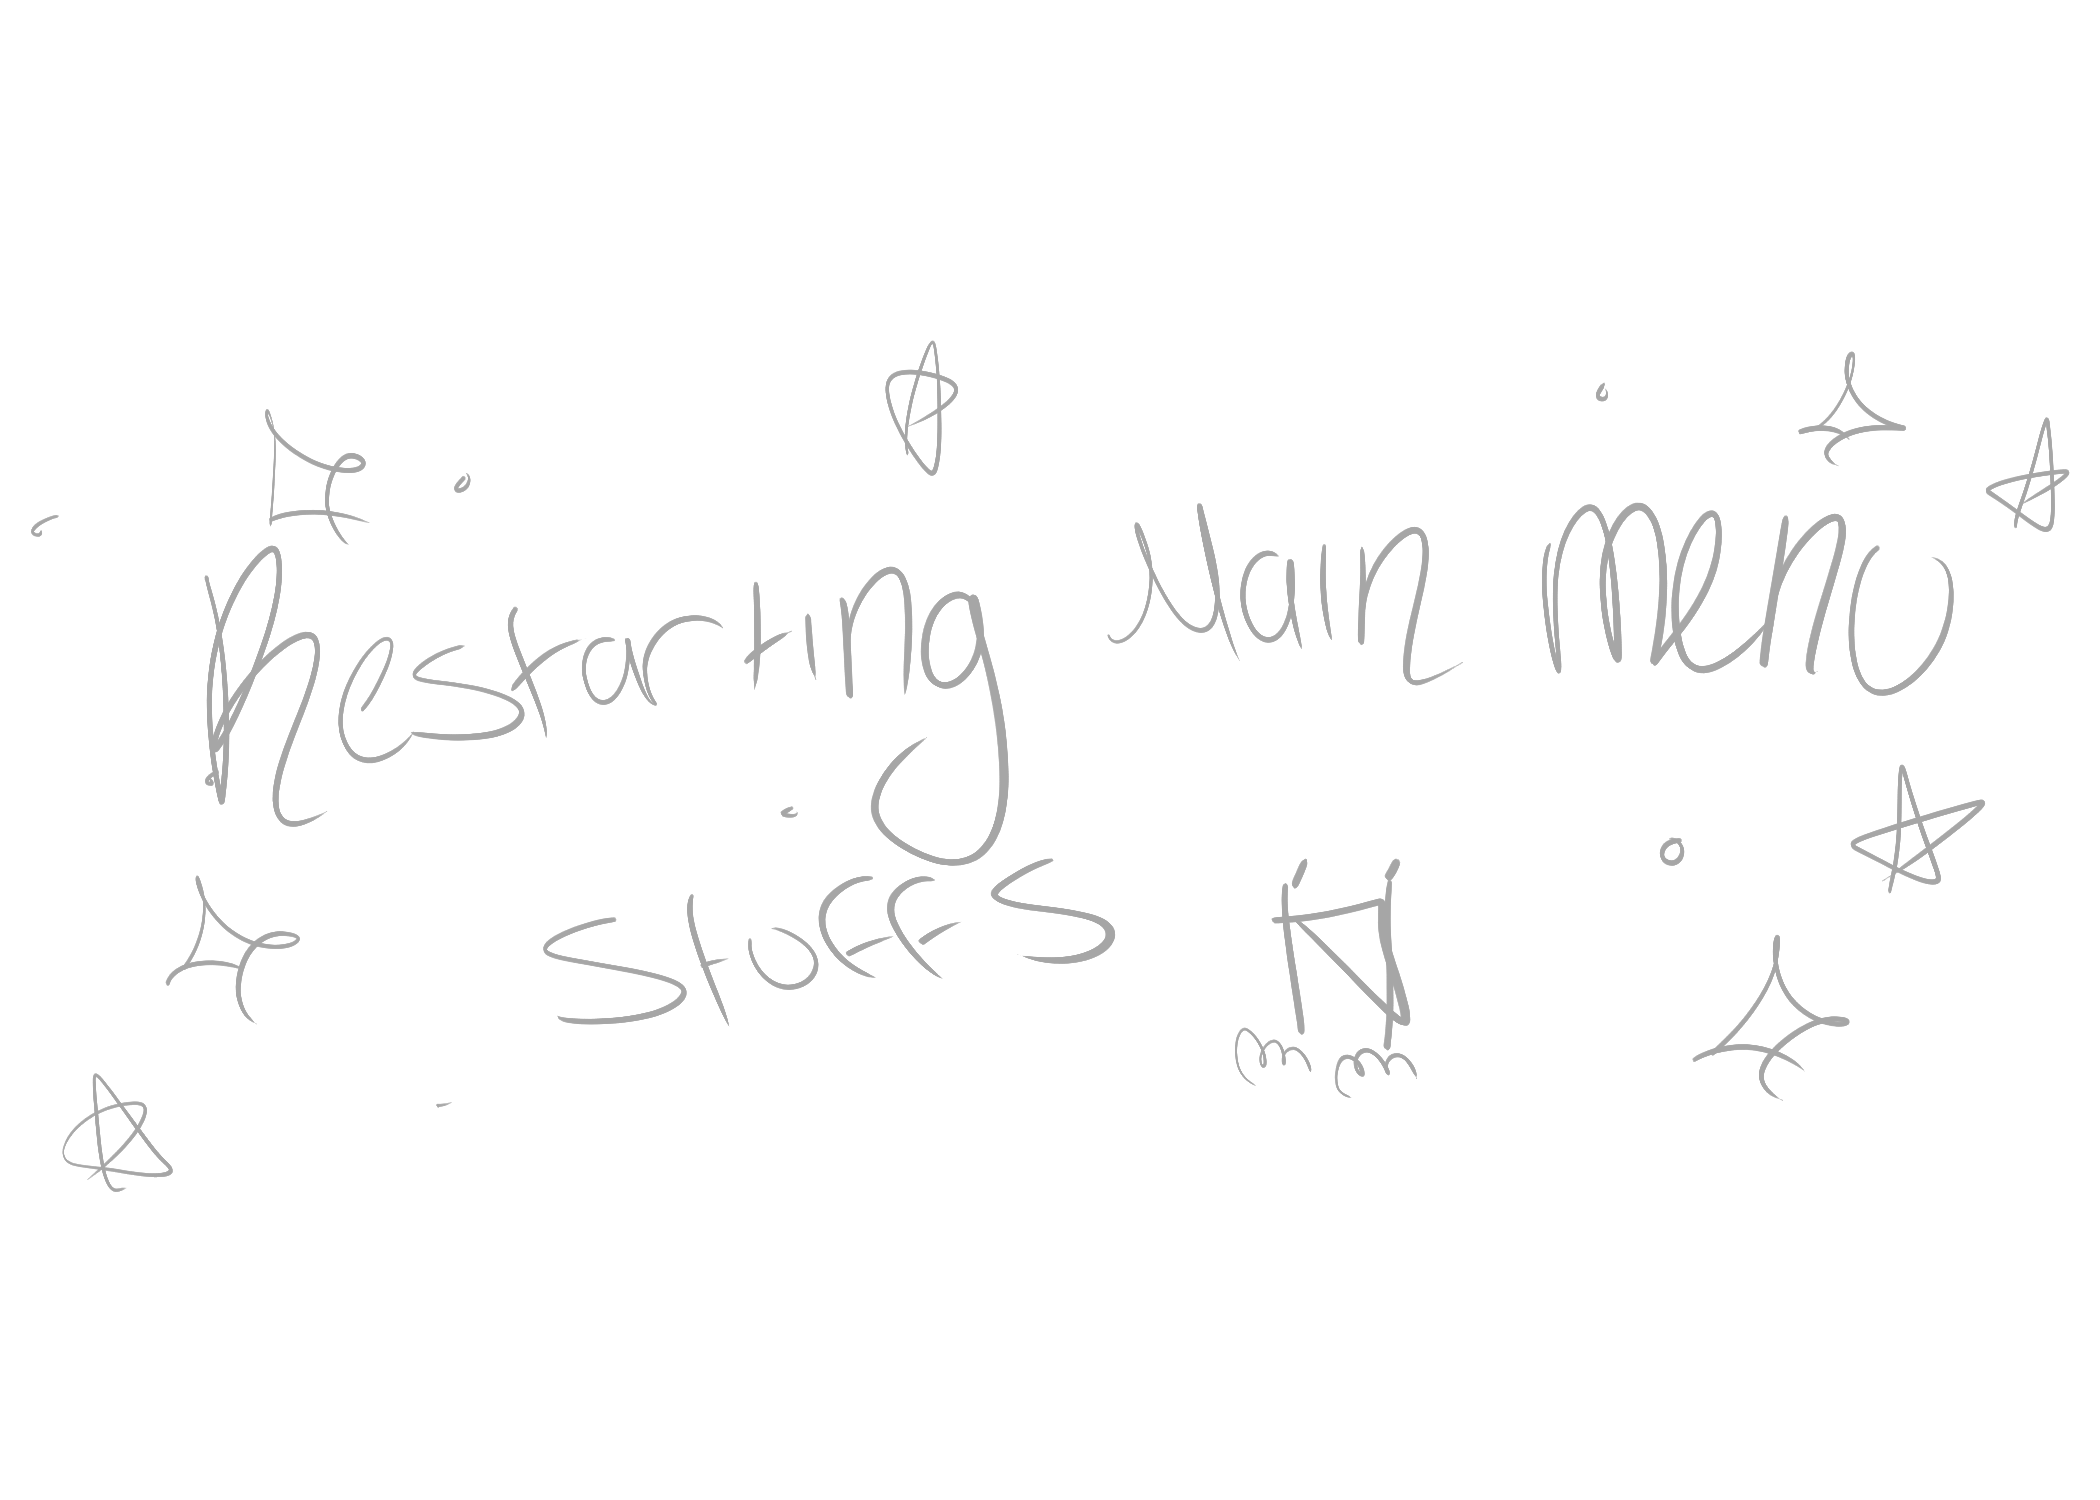 Restarting Main menu
stuffs